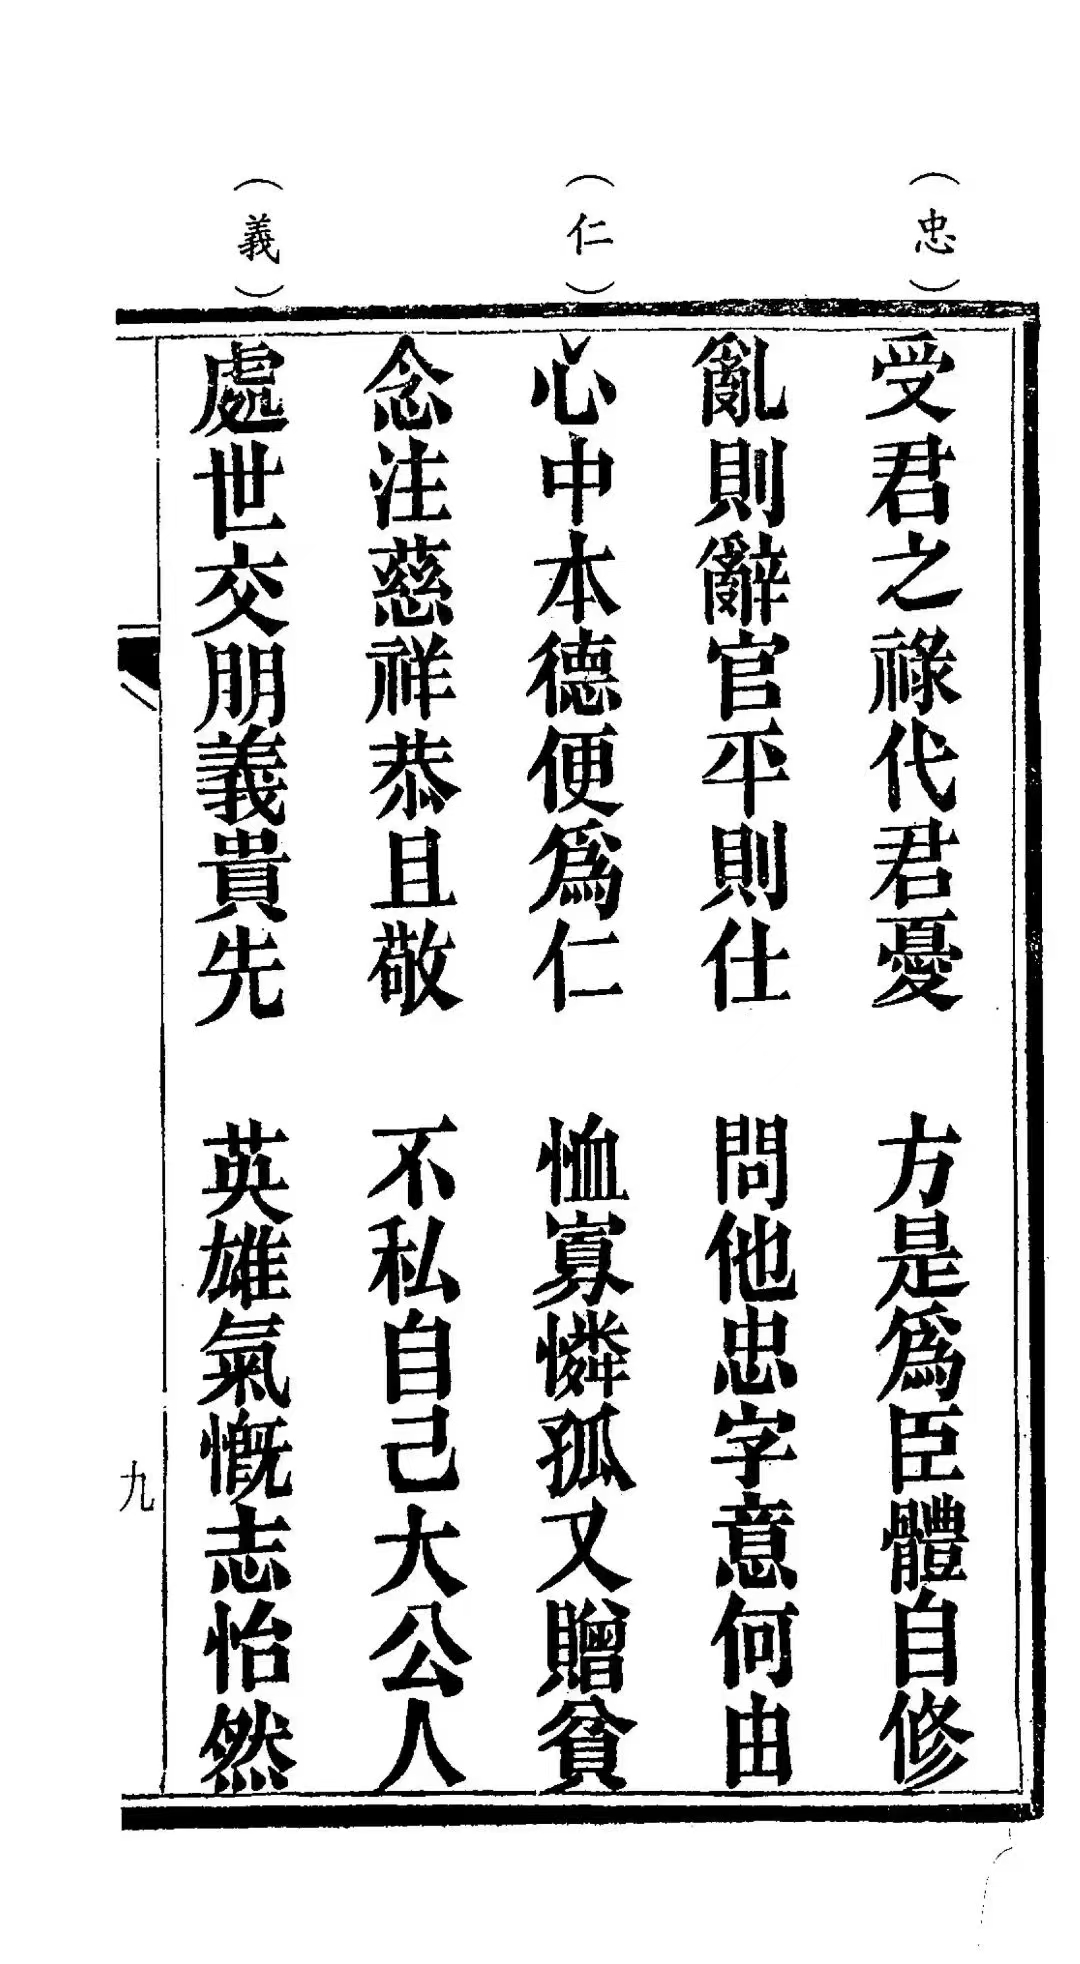 （忠）
受君之祿代君憂　方是為臣體自修
亂則辭官平則仕　問他忠字意何由
（仁）
心中本德便為仁　恤寡憐孤又贈貧
念注慈祥恭且敬　不私自己大公人
（義）
處世交朋義貴先　英雄氣慨志怡然
九